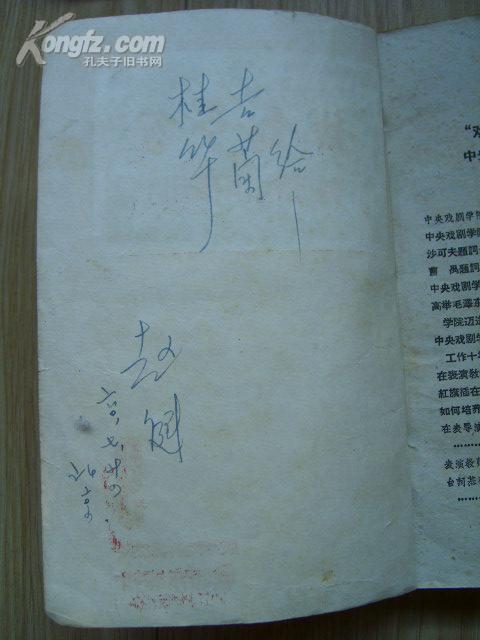 Kongfz.com
孔夫子旧书网
桂吉
华兰给
赵健
六〇、七、廿四、
北京
"戏
中央
中央戏剧学院
中央戏剧学院
沙可夫题詞
曹 禺题詞
中央戏剧学
高举毛澤东
学院迈进
中央戏剧学
工作十年
在表演教
紅旗插在
如何培养
在表导演
表演教
台詞基